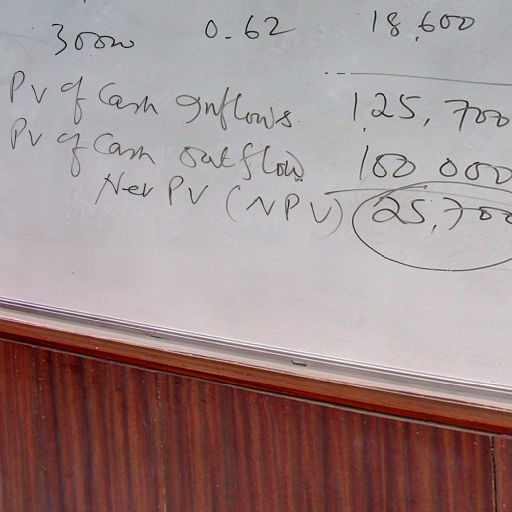 30000 0.62 18,600
PV of Cash Inflows 1,25,700
PV of Cash outflow 100 000
Net PV (NPV) 25,700